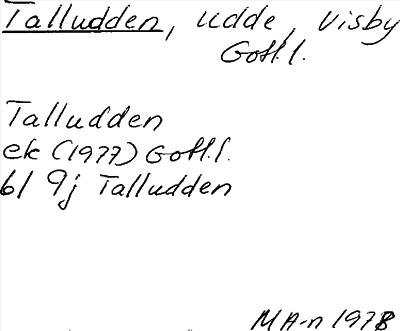 Talludden, udde, Visby
Gotl.l.
Talludden
ek (1977) Gotl.l.
6I 9j Talludden
MA-n 1978